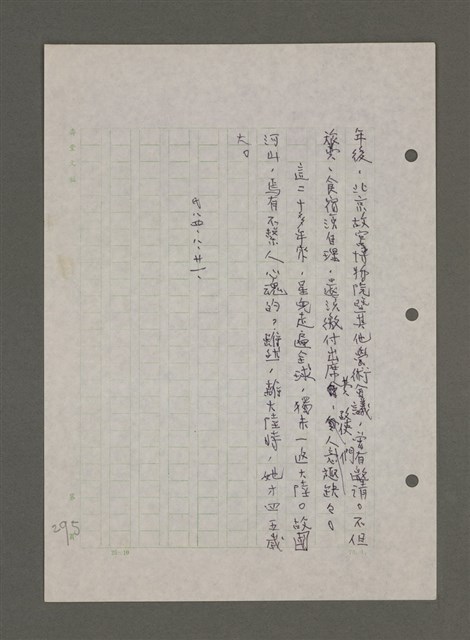 年後，北京故宮博物院暨其他學術會議，曾有邀請。不但
旅費、食宿須自理，還須繳付出席費，使人意趣缺缺。
這二十多年來，星兒走遍全球，獨未一返大陸。故國
河山，焉有不繫人心魂的。雖然，離大陸時，她才四五歲
大。
民八四、八、廿一、
295